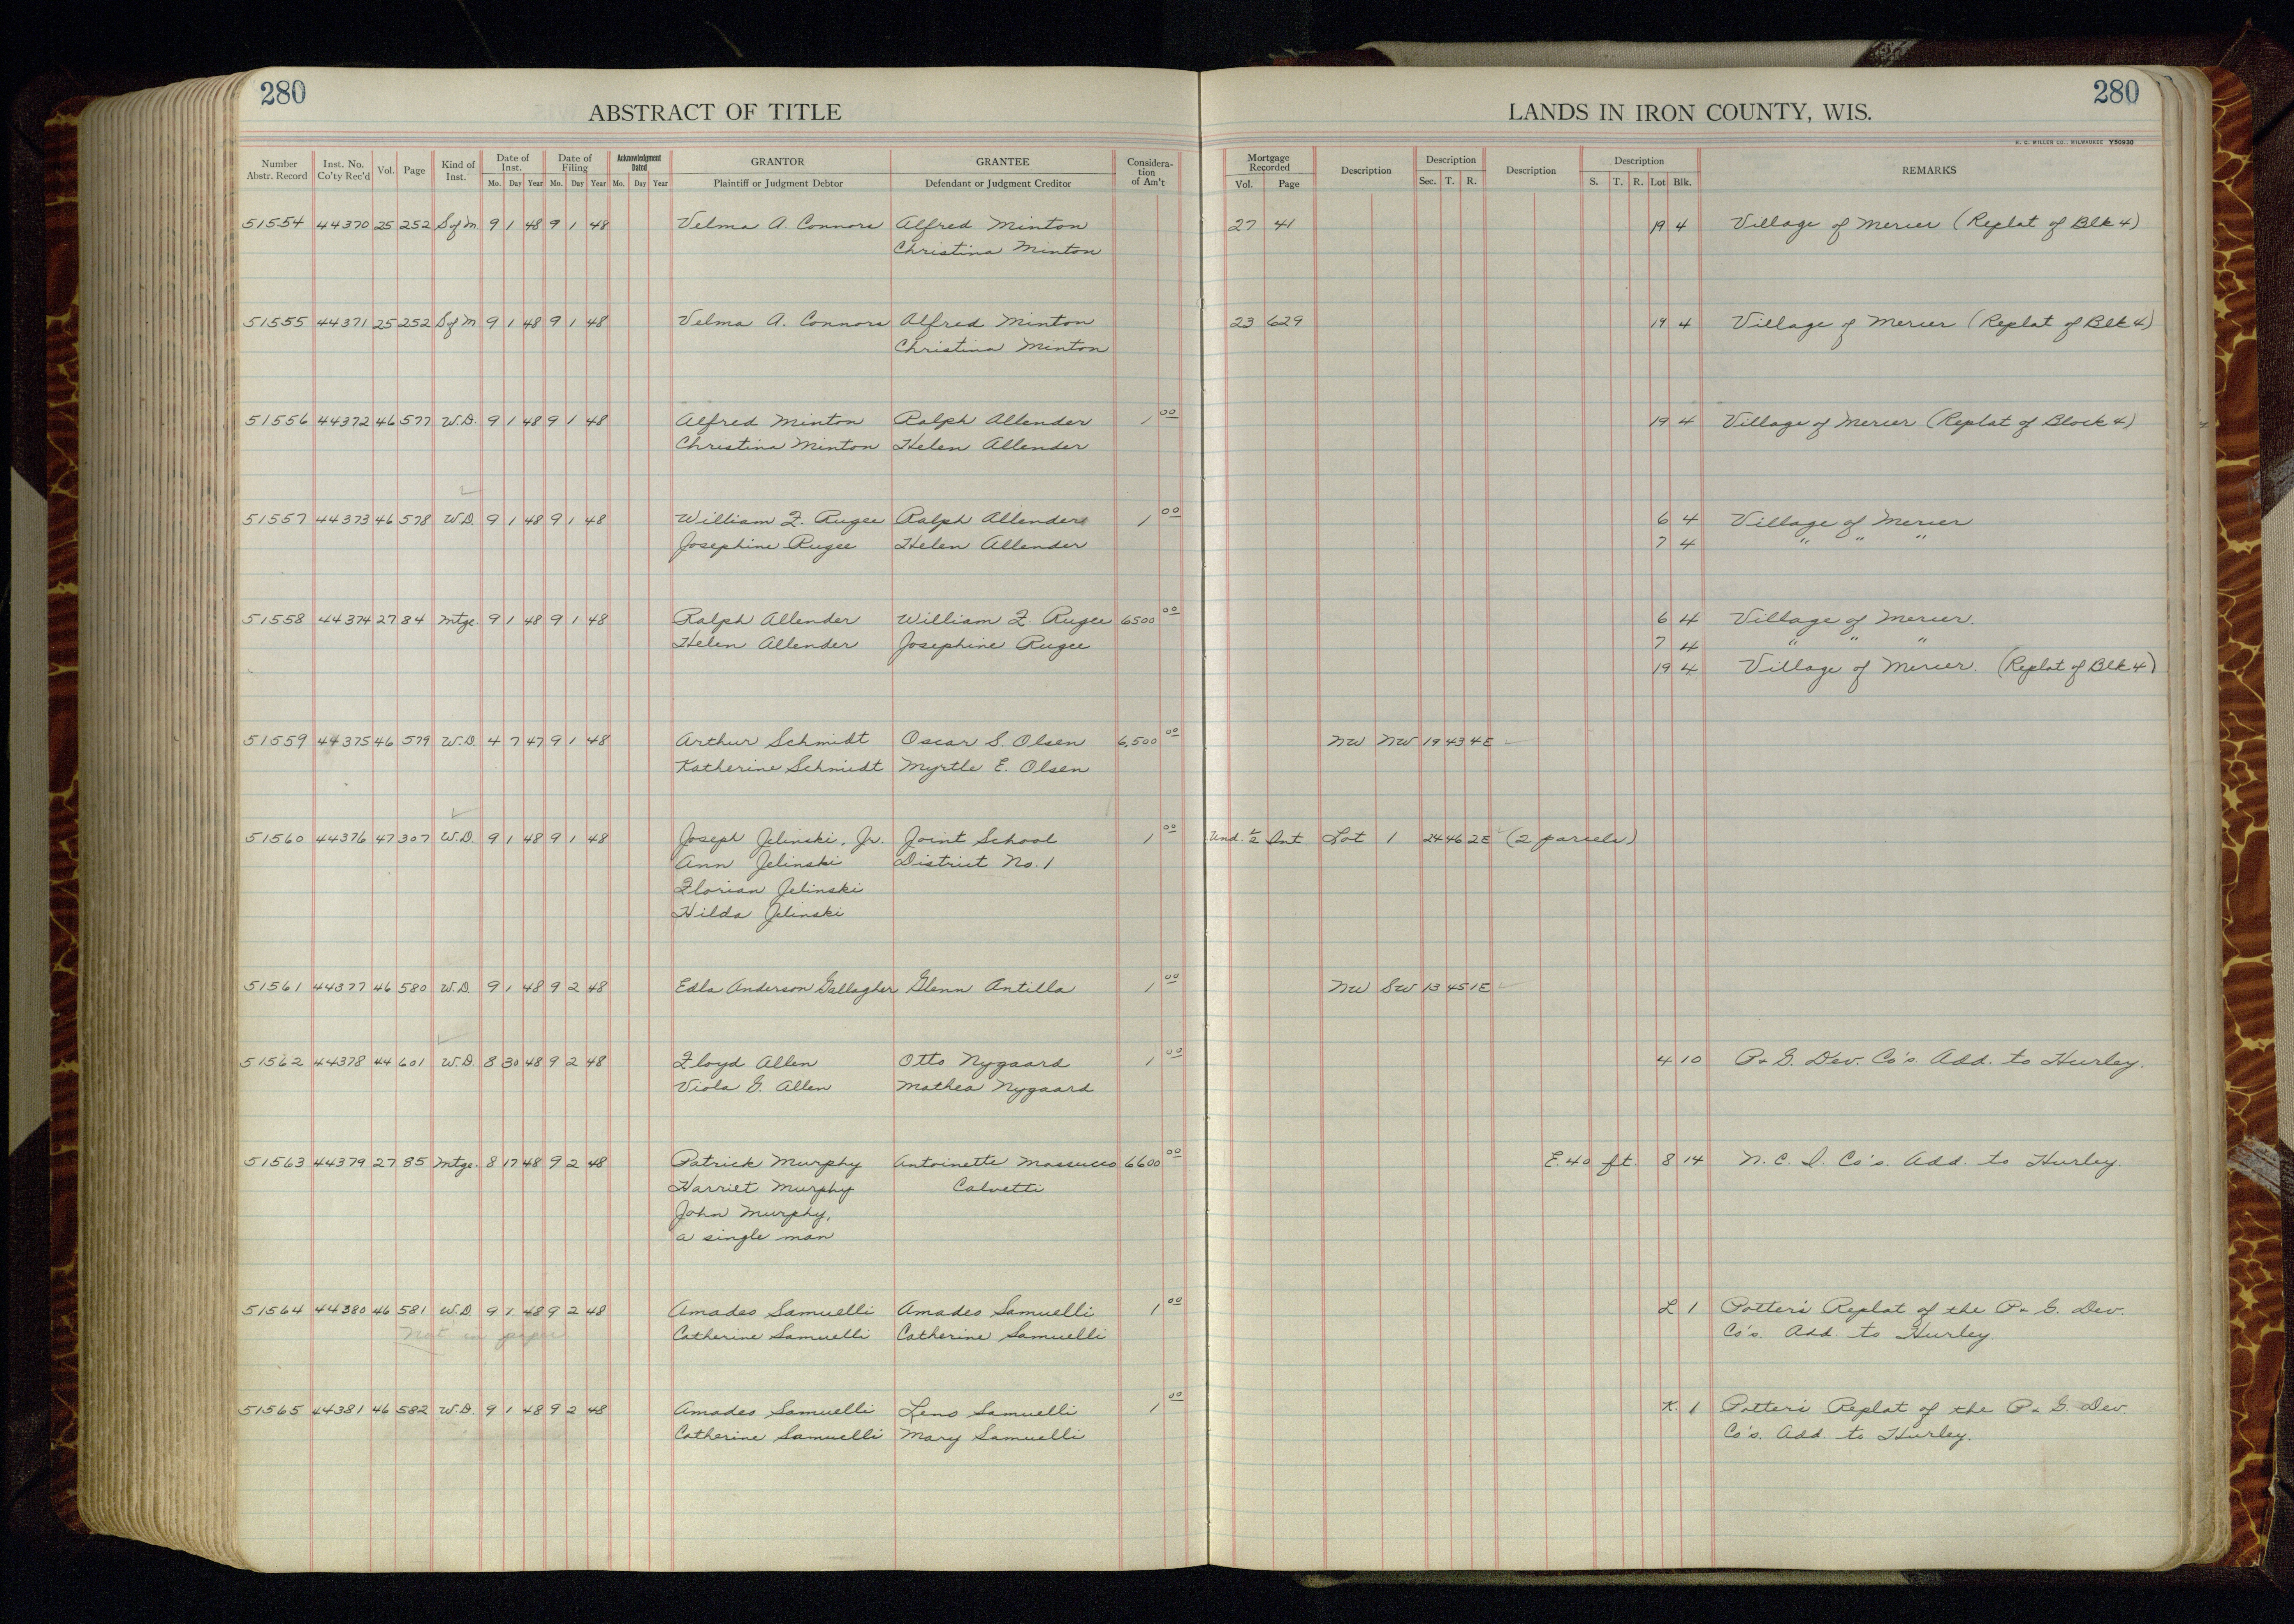 280
280
ABSTRACT OF TITLE
LANDS IN IRON COUNTY, WIS.
H. C. MILLER CO., MILWAUKEE Y50930
Number Abstr. Record Inst. No. Co'ty Rec'd Vol. Page Kind of Inst. Date of Inst. Mo. Day Year Date of Filing Mo. Day Year Acknowledgment Dated Mo. Day Year GRANTOR Plaintiff or Judgment Debtor GRANTEE Defendant or Judgment Creditor Considera-tion of Am't Mortgage Recorded Vol. Page Description Description Sec. T. R. Description Description S. T. R. Lot Blk. REMARKS
51554 44370 25 252 S of M. 9 1 48 9 1 48 Velma A. Connors Alfred Minton 27 41 19 4 Village of Mercer (Replat of Blk 4)
Christina Minton
51555 44371 25 252 S of M 9 1 48 9 1 48 Velma A. Connors Alfred Minton 23 629 19 4 Village of Mercer (Replat of Blk 4)
Christina Minton
51556 44372 46 577 W.D. 9 1 48 9 1 48 Alfred Minton Ralph Allender 1 00 19 4 Village of Mercer (Replat of Block 4)
Christina Minton Helen Allender
51557 44373 46 578 W.D. 9 1 48 9 1 48 William F. Rugee Ralph Allender 1 00 6 4 Village of Mercer
Josephine Rugee Helen Allender 7 4 " " "
51558 44374 27 84 Mtge. 9 1 48 9 1 48 Ralph Allender William F. Rugee 6500 00 6 4 Village of Mercer.
Helen Allender Josephine Rugee 7 4 " " "
19 4 Village of Mercer. (Replat of Blk 4)
51559 44375 46 579 W.D. 4 7 47 9 1 48 Arthur Schmidt Oscar S. Olsen 6,500 00 NW NW 19 43 4E
Katherine Schmidt Myrtle E. Olsen
51560 44376 47 307 W.D. 9 1 48 9 1 48 Joseph Jelinski, Jr. Joint School 1 00 Und. 1/2 Int. Lot 1 24 46 2E (2 parcels)
Ann Jelinski District No. 1
Florian Jelinski
Hilda Jelinski
51561 44377 46 580 W.D. 9 1 48 9 2 48 Edla Anderson Gallagher Glenn Antilla 1 00 NW SW 13 45 1E
51562 44378 44 601 W.D. 8 30 48 9 2 48 Floyd Allen Otto Nygaard 1 00 4 10 P. & G. Dev. Co's. Add. to Hurley.
Viola G. Allen Mathea Nygaard
51563 44379 27 85 Mtge. 8 17 48 9 2 48 Patrick Murphy Antoinette Massucco 6600 00 E. 40 ft. 8 14 N. C. I. Co's. Add. to Hurley.
Harriet Murphy Calvetti
John Murphy,
a single man
51564 44380 46 581 W.D. 9 1 48 9 2 48 Amadeo Samuelli Amadeo Samuelli 1 00 L 1 Potter's Replat of the P. & G. Dev.
Not in paper Catherine Samuelli Catherine Samuelli Co's. Add. to Hurley.
51565 44381 46 582 W.D. 9 1 48 9 2 48 Amadeo Samuelli Leno Samuelli 1 00 K. 1 Potter's Replat of the P. & G. Dev.
Catherine Samuelli Mary Samuelli Co's. Add. to Hurley.